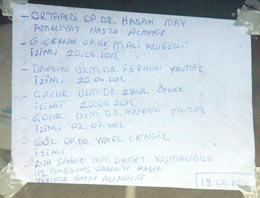 - ORTAPEDİ OP.DR. HASAN MAY
AMELİYAT HASTA ALMIYOR
- G. CERRAH OP.DR. M.ALİ ADIBELLİ
İZİNLİ 20.06.2012
- DAHİLİYE UZM.DR. FERHAN YILMAZ
İZİNLİ 20.06.2012
- ÇOCUK UZM.DR.
İZİNLİ 20.06.2012
- ÇOCUK UZM DR. HÜSEYİN YILMAZ
İZİNLİ 02.07.2012
- GÖZ OP.DR. YÜCEL CENGİZ
İZİNLİ
RUH SAĞLIĞI UZM. AHMET
HABER
HASTA ALINACAK...
19.06.2012